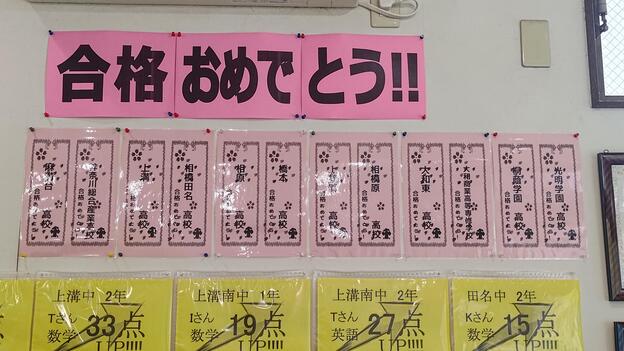 合格おめでとう!!
麻溝台 高校 合格おめでとう
神奈川総合産業高校 合格おめでとう
上溝 高校 合格おめでとう
相模田名 高校 合格おめでとう
相原 高校 合格おめでとう
橋本 高校 合格おめでとう
高校 合格おめでとう
相模原 高校 合格おめでとう
大和東 高校 合格おめでとう
大和商業高等専修学校 合格おめでとう
柳学園 高校 合格おめでとう
光明学園 高校 合格おめでとう
上溝中 2年
Tさん
数学 33点
UP!!!!
上溝南中 1年
Iさん
数学 19点
UP!!!!
上溝南中 2年
Tさん
英語 27点
UP!!!!
田名中 2年
Kさん
数学 15点
UP!!!!